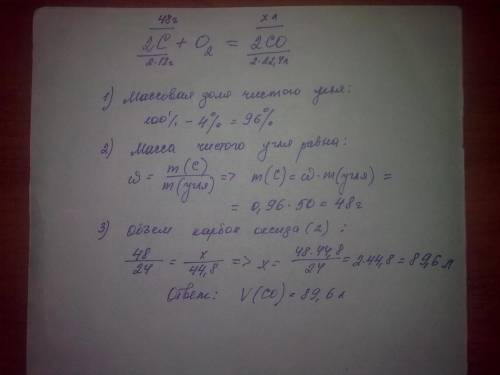 48г xл
2C + O₂ = 2CO
2·12г 2·22,4л
1) Массовая доля чистого угля:
100% - 4% = 96%
2) Масса чистого угля равна:
ω = m(C)/m(угля) => m(C) = ω·m(угля) =
= 0,96·50 = 48г
3) Объем карбон оксида (2) :
48/24 = x/44,8 => x = 48·44,8/24 = 2·44,8 = 89,6 л
Ответ: V(CO) = 89,6 л